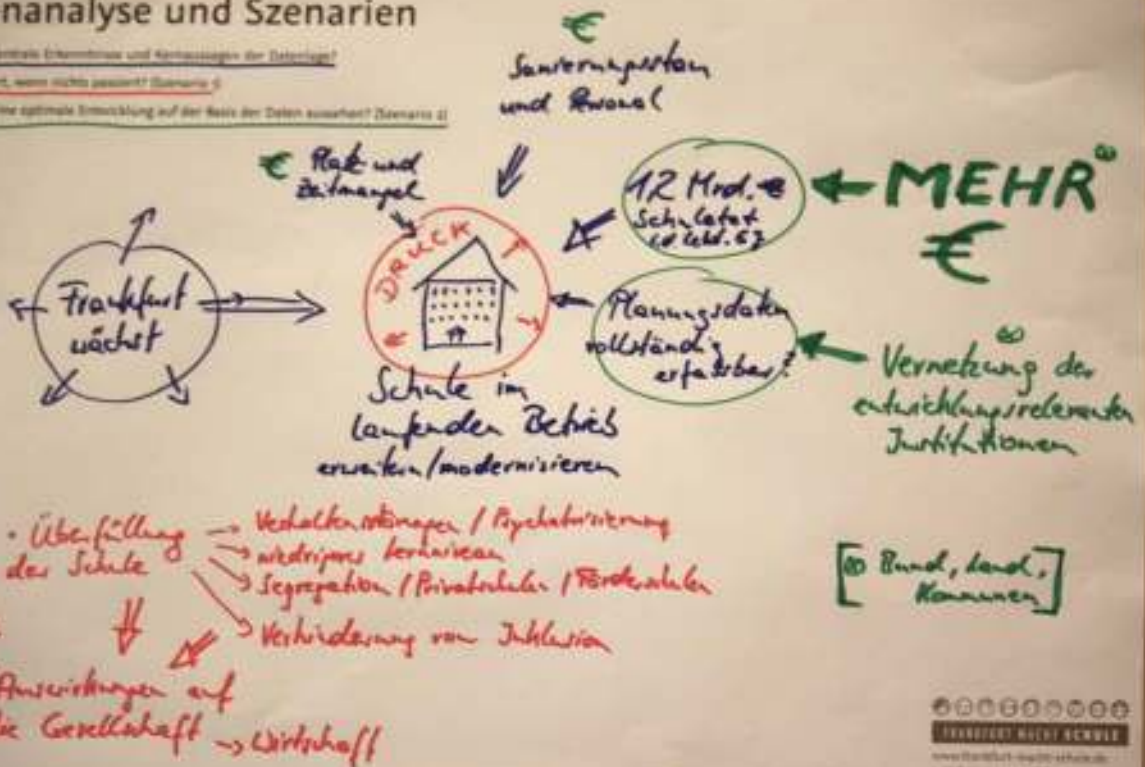 nanalyse und Szenarien
zentrale Erkenntnisse und Kernaussagen der Datenlage?
rt, wenn nichts passiert? (Szenario 1)
ine optimale Entwicklung auf der Basis der Daten aussehen? (Szenario 2)
€
Sanierungsstau
und Personal
€ Platz und
Zeitmangel
12 Mrd. €
Schuletat
MEHR
€
DRUCK
Frankfurt
wächst
Planungsdaten
vollständig
erfassbar?
Vernetzung der
entwicklungsrelevanten
Institutionen
Schule im
laufenden Betrieb
erweitern/modernisieren
· Überfüllung
der Schule
Verhaltensstörungen / Psychatrisierung
niedrigeres Lernniveau
Segregation / Privatschulen / Förderschulen
Verhinderung von Inklusion
Bund, Land,
Kommunen
Auswirkungen auf
ie Gesellschaft → Wirtschaft
FRANKFURT MACHT SCHULE
www.frankfurt-macht-schule.de